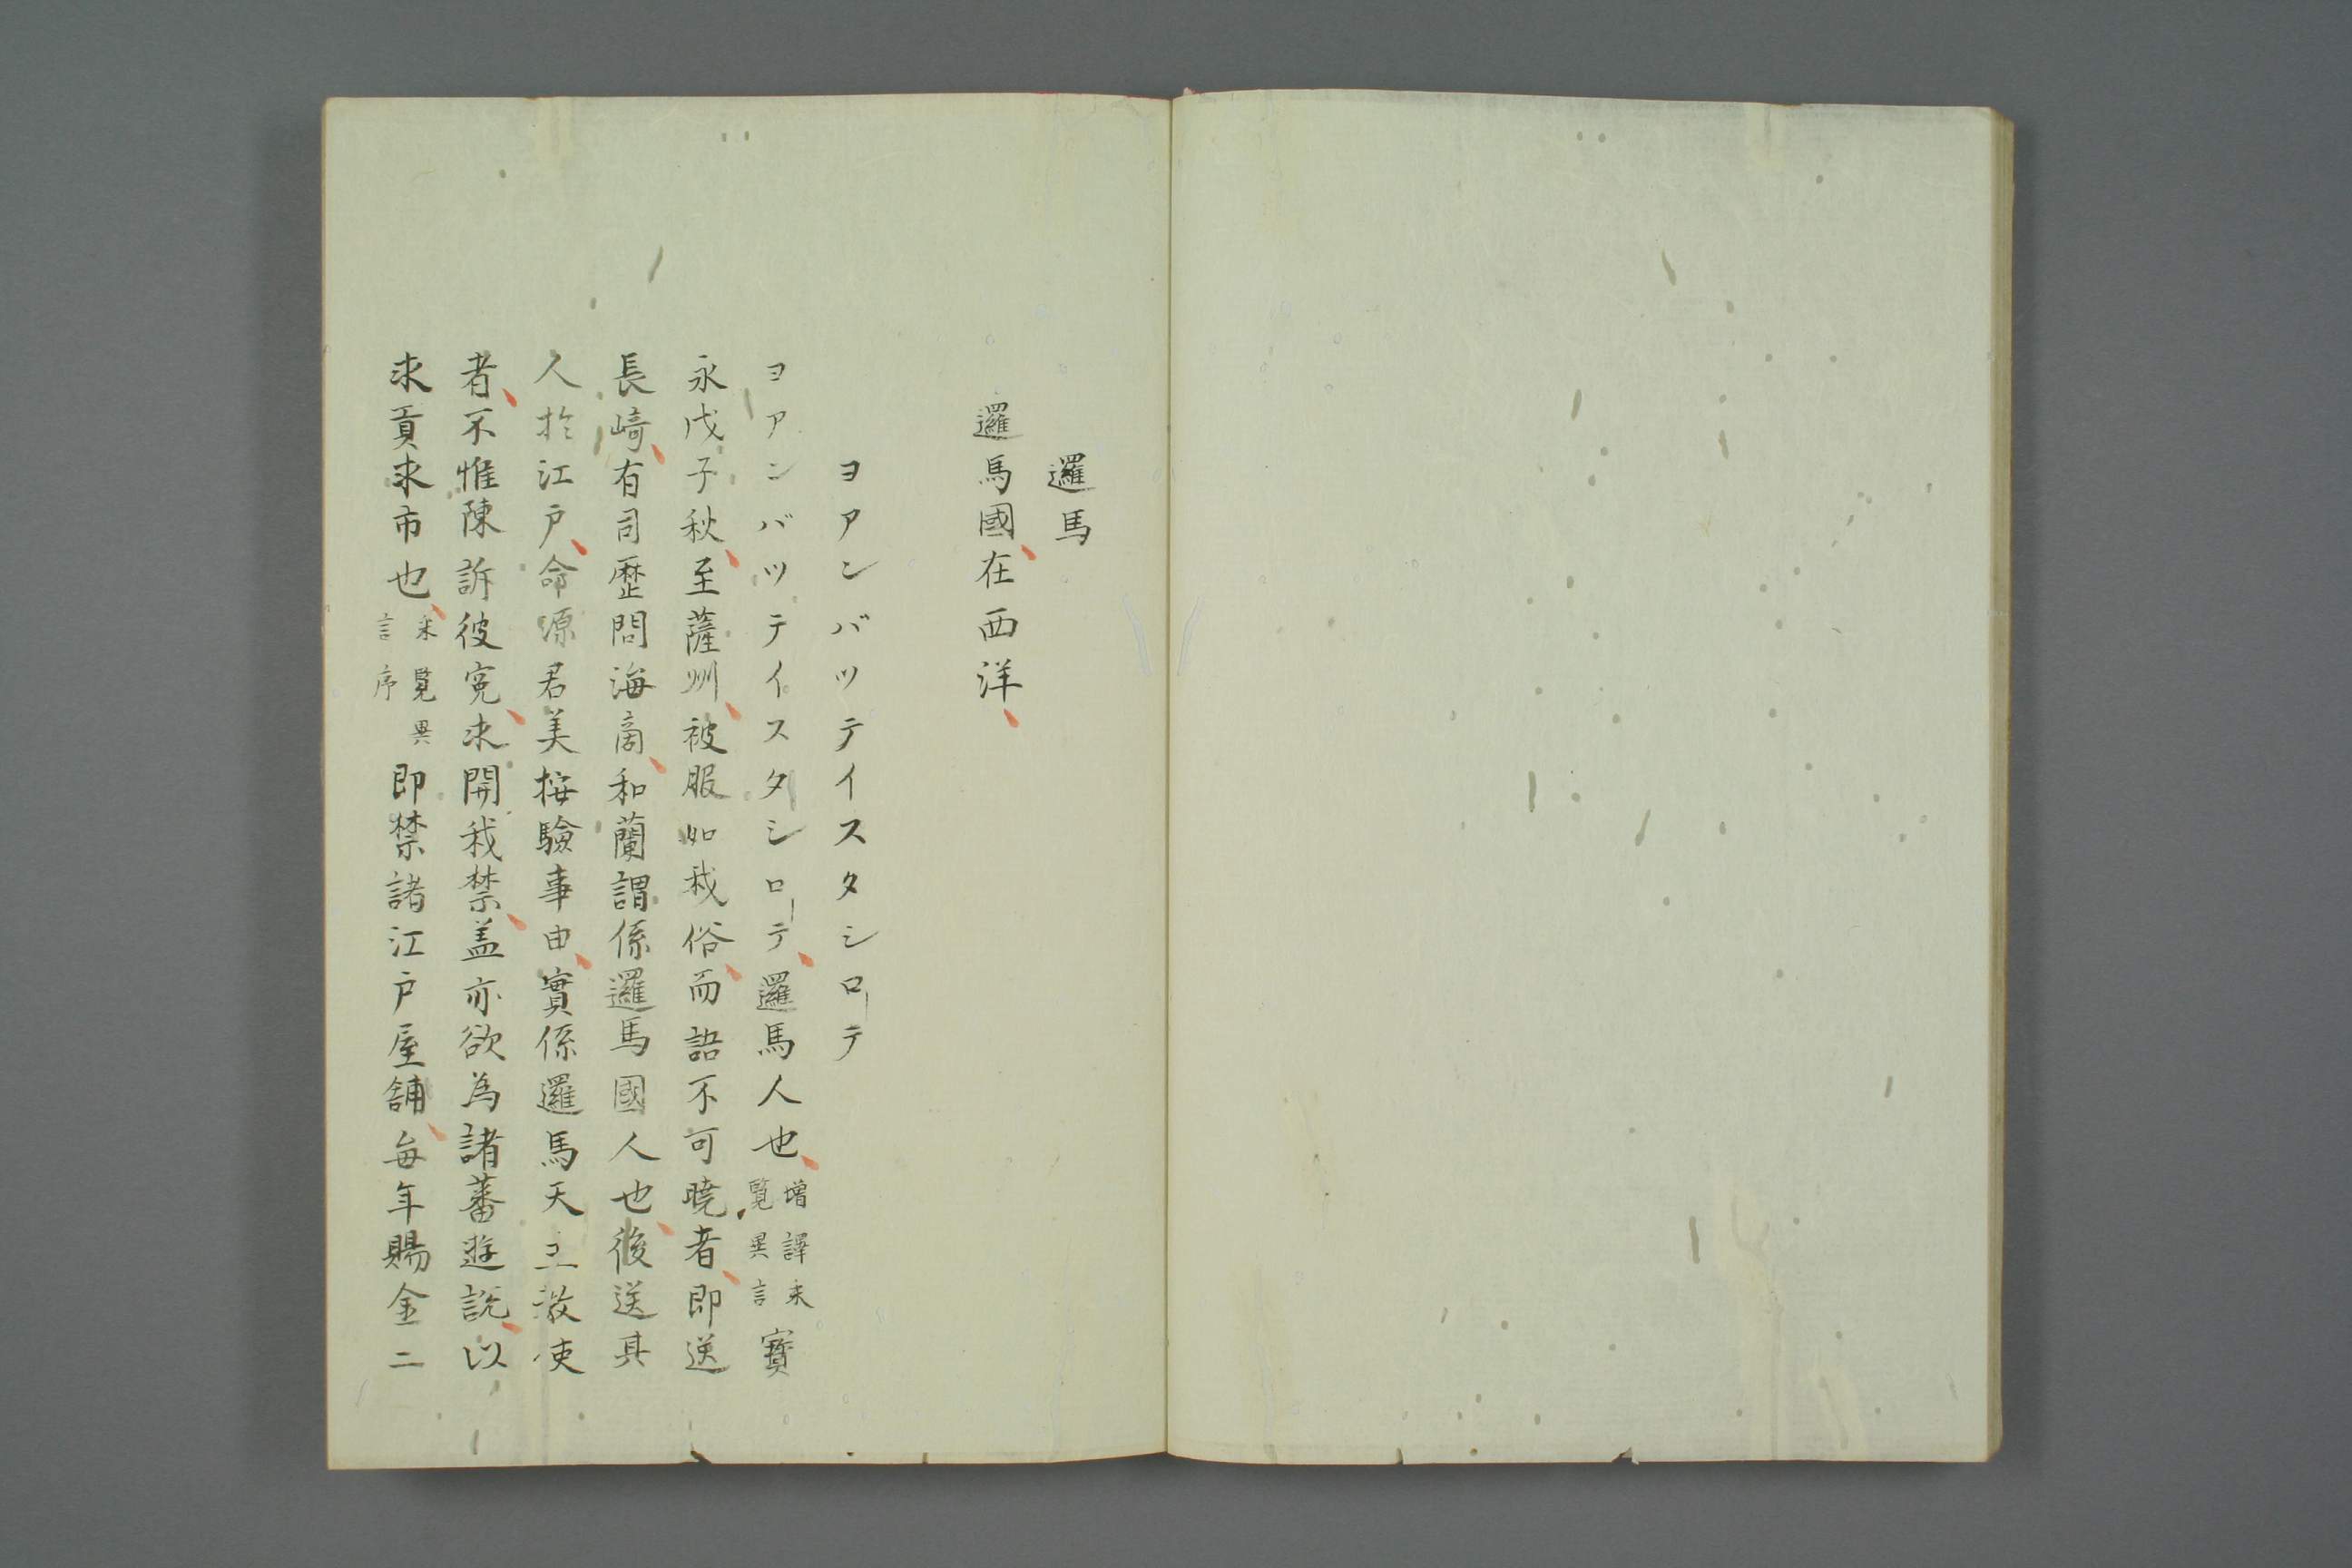 邏馬
邏馬國、在西洋、
ヨアンバツテイスタシローテ
ヨアンバツテイスタシローテ、邏馬人也、增譯釆覽異言寳
永戊子秋、至薩州、被服如我俗、而語不可曉者、即送
長崎、有司歷問海商、和蘭謂係邏馬國人也、後送其
人於江戶、命源君美按驗事由、實係邏馬天主教使
者、不惟陳訴彼冤、求開我禁、盖亦欲為諸蕃遊說、以
求貢求市也、釆覽異言序即禁諸江戶屋舖、每年賜金二